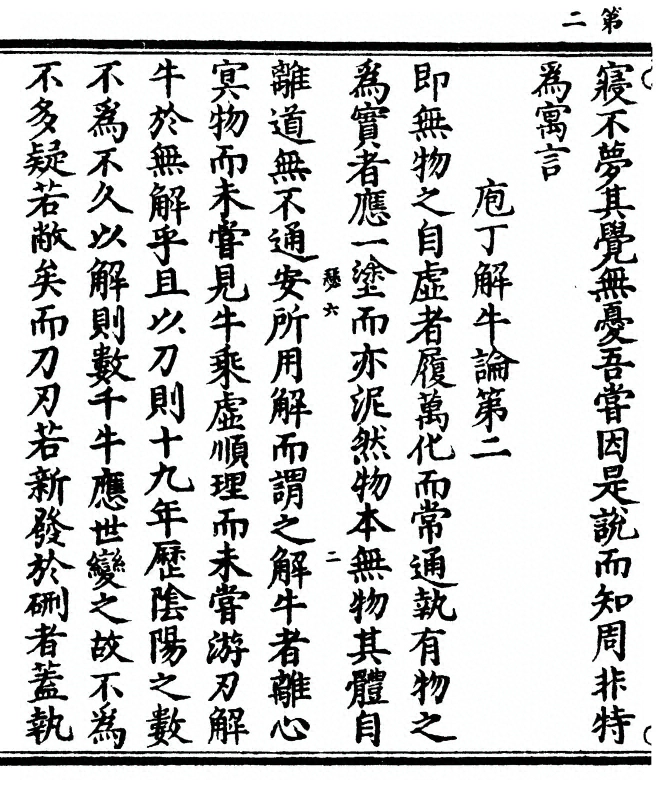 第二
寢不夢其覺無憂吾嘗因是說而知周非特
為寓言
庖丁解牛論第二
即無物之自虛者履萬化而常通執有物之
為實者應一塗而亦泥然物本無物其體自
瑟六
二
離道無不通安所用解而謂之解牛者離心
冥物而未嘗見牛乘虛順理而未嘗游刃解
牛於無解乎且以刀則十九年歷陰陽之數
不為不久以解則數千牛應世變之故不為
不多疑若敝矣而刀刃若新發於硎者蓋執